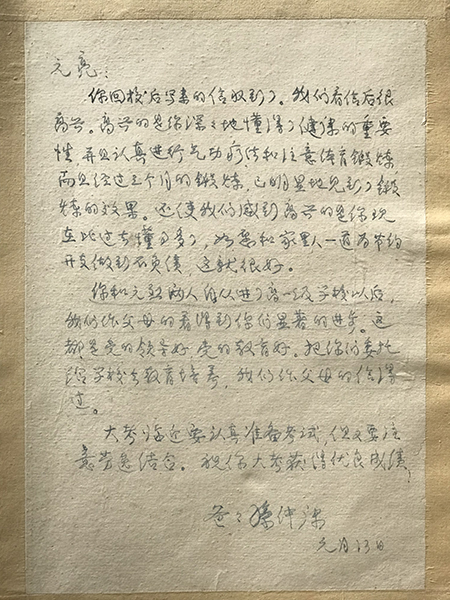 元亮：
你回校后写来的信收到了。我们看信后很
高兴。高兴的是你深深地懂得了健康的重要
性，并且认真进行气功疗法和注意体育锻炼
而且经过三个月的锻炼，已明显地见到了锻
炼的效果。还使我们感到高兴的是你现
在比过去懂事多了，如要和家里人一道为节约
开支做到不负债 这就很好。
你和元 两人自从进了高 及学校以后，
我们作父母的看得到你们显著的进步。这
都是党的领导好 党的教育好。把你们委托
给学校去教育培养，我们作父母的信得
过。
大考临近要认真准备考试，但又要注
意劳逸结合。祝你大考获得优良成绩，
爸爸 仲
元月13日